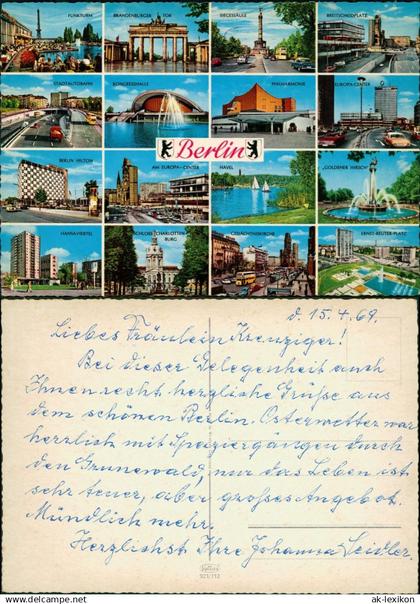 FUNKTURM
BRANDENBURGER TOR
SIEGESSÄULE
BREITSCHEIDPLATZ
STADTAUTOBAHN
KONGRESSHALLE
PHILHARMONIE
EUROPA-CENTER
Berlin
BERLIN HILTON
AM EUROPA-CENTER
HAVEL
„GOLDENER HIRSCH“
HANSAVIERTEL
SCHLOSS CHARLOTTEN-
BURG
GEDÄCHTNISKIRCHE
ERNST-REUTER-PLATZ
d. 15. 4. 69.
Liebes Fräulein Kreuziger!
Bei dieser Gelegenheit auch
Ihnen recht herzliche Grüße aus
dem schönen Berlin. Osterwetter war
herrlich mit Spaziergängen durch
den Grunewald, nur das Leben ist
sehr teuer, aber großes Angebot.
Mündlich mehr.
Herzlichst Ihre Johanna Seidler.
921/112
© ak-ansichtskarten.de
ak-lexikon